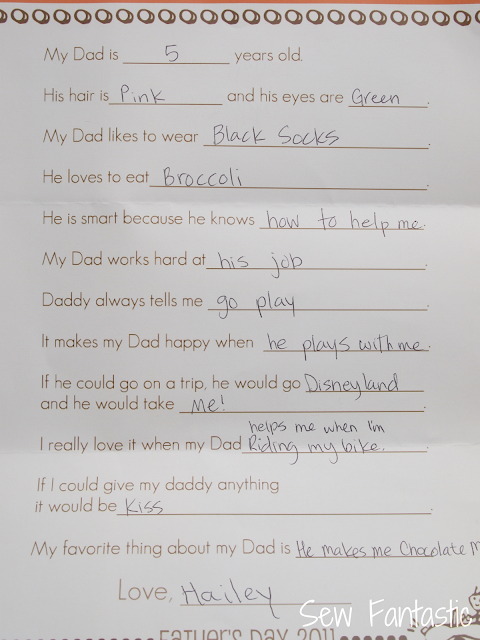 My Dad is 5 years old.
His hair is Pink and his eyes are Green.
My Dad likes to wear Black Socks.
He loves to eat Broccoli.
He is smart because he knows how to help me.
My Dad works hard at his job.
Daddy always tells me go play.
It makes my Dad happy when he plays with me.
If he could go on a trip, he would go Disneyland
and he would take me!.
helps me when I'm
I really love it when my Dad Riding my bike.
If I could give my daddy anything
it would be Kiss.
My favorite thing about my Dad is He makes me Chocolate M
Love, Hailey
Sew Fantastic
Father's Day 2011